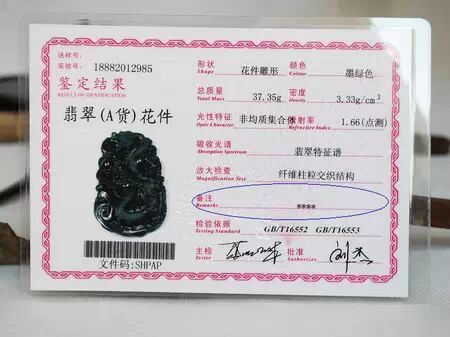 送样号:
实验号: 18882012985
鉴定结果
RESULT OF IDENTIFICATION
翡翠(A货)花件
文件码:SHPAP
形状 花件雕形 颜色 墨绿色
Shape Colour
总质量 37.35g 密度 3.33g/cm³
Total Mass Density
光性特征 非均质集合体 折射率 1.66(点测)
Optic Character Refractive Index
吸收光谱 翡翠特征谱
Absorption Spectrum
放大检查 纤维柱粒交织结构
Magnification Test
备注 ****
Remarks
检验依据 GB/T16552 GB/T16553
Testing Standard
主检 批准
Tester Authorizer